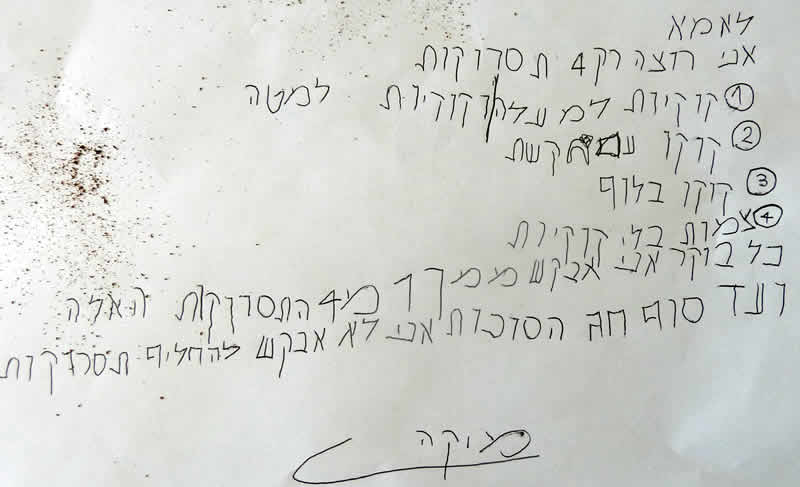 לאמא
אני רוצה רק 4 תסרוקות
① קוקיות למעלה/קוקיות למטה
② קוקו עם קשת
③ קוקו בלוף
④ צמות בלי קוקיות
כל בוקר אני אבקש ממך 1 מ4 התסרוקות האלה
ועד סוף חג הסוכות אני לא אבקש להחליף תסרוקות
מיקה